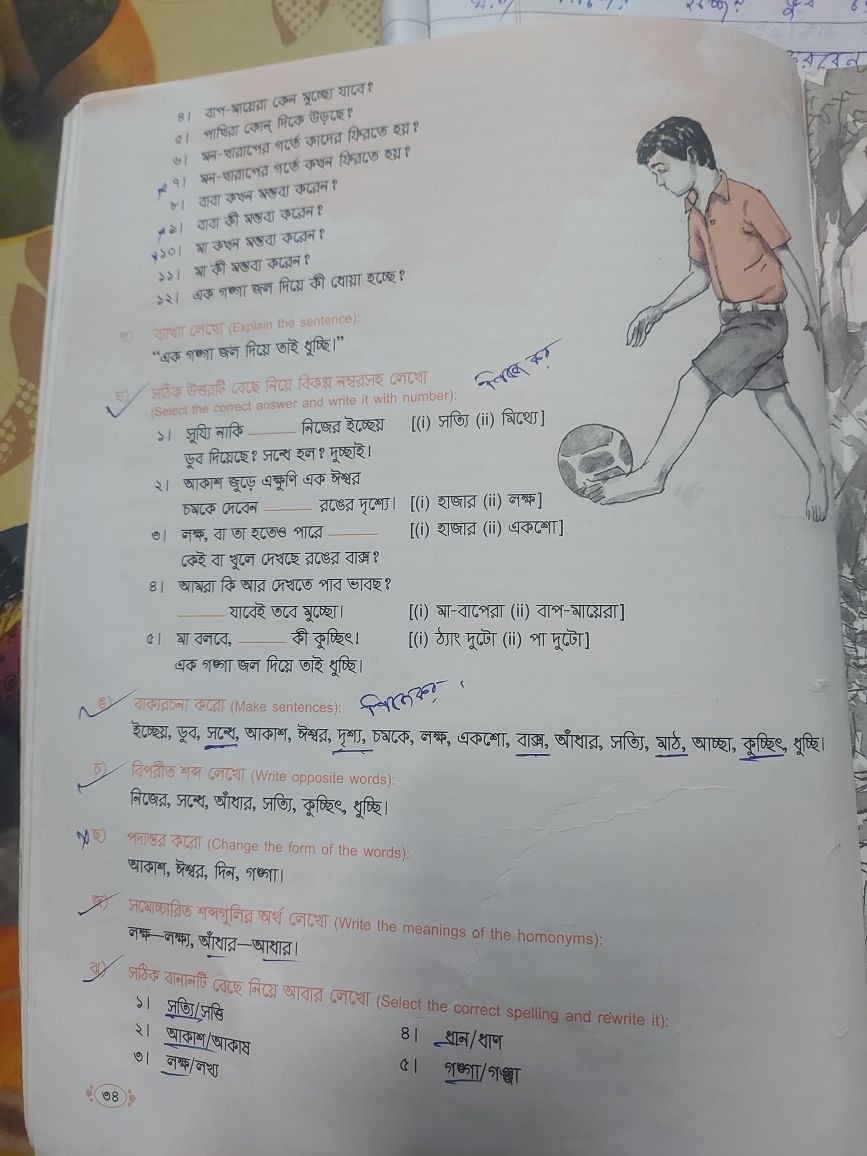 ৪। বাপ-মায়েরা কেন মুচ্ছো যাবে?
৫। পাখিরা কোন্ দিকে উড়ছে?
৬। মন-খারাপের গর্তে কাদের ফিরতে হয়?
৭। মন-খারাপের গর্তে কখন ফিরতে হয়?
৮। বাবা কখন মন্তব্য করেন?
৯। বাবা কী মন্তব্য করেন?
১০। মা কখন মন্তব্য করেন?
১১। মা কী মন্তব্য করেন?
১২। এক গঙ্গা জল দিয়ে কী ধোয়া হচ্ছে?
গ) ব্যাখ্যা লেখো (Explain the sentence):
“এক গঙ্গা জল দিয়ে তাই ধুচ্ছি।”
ঘ) সঠিক উত্তরটি বেছে নিয়ে বিকল্প নম্বরসহ লেখো
নিজে কর
(Select the correct answer and write it with number):
১। সূয্যি নাকি ______ নিজের ইচ্ছেয় [(i) সত্যি (ii) মিথ্যে]
ডুব দিয়েছে? সন্ধে হল? দুচ্ছাই!
২। আকাশ জুড়ে এক্ষুনি এক ঈশ্বর
চমকে দেবেন ______ রঙের দৃশ্যে। [(i) হাজার (ii) লক্ষ]
৩। লক্ষ, বা তা হতেও পারে ______ [(i) হাজার (ii) একশো]
কেই বা খুলে দেখছে রঙের বাক্স?
৪। আমরা কি আর দেখতে পাব ভাবছ?
______ যাবেই তবে মুচ্ছো। [(i) মা-বাপেরা (ii) বাপ-মায়েরা]
৫। মা বলবে, ______ কী কুচ্ছিৎ! [(i) ঠ্যাং দুটো (ii) পা দুটো]
এক গঙ্গা জল দিয়ে তাই ধুচ্ছি।
ঙ) বাক্যরচনা করো (Make sentences): নিজে কর
ইচ্ছেয়, ডুব, সন্ধে, আকাশ, ঈশ্বর, দৃশ্য, চমকে, লক্ষ, একশো, বাক্স, আঁধার, সত্যি, মাঠ, আচ্ছা, কুচ্ছিৎ, ধুচ্ছি।
চ) বিপরীত শব্দ লেখো (Write opposite words):
নিজের, সন্ধে, আঁধার, সত্যি, কুচ্ছিৎ, ধুচ্ছি।
ছ) পদান্তর করো (Change the form of the words):
আকাশ, ঈশ্বর, দিন, গঙ্গা।
জ) সমোচ্চারিত শব্দগুলির অর্থ লেখো (Write the meanings of the homonyms):
লক্ষ—লক্ষ্য, আঁধার—আধার।
ঝ) সঠিক বানানটি বেছে নিয়ে আবার লেখো (Select the correct spelling and rewrite it):
১। সত্যি/সত্তি
২। আকাশ/আকাষ
৩। লক্ষ/লখ্য
৪। ধান/ধাণ
৫। গঙ্গা/গঙ্ঘা
৩৪